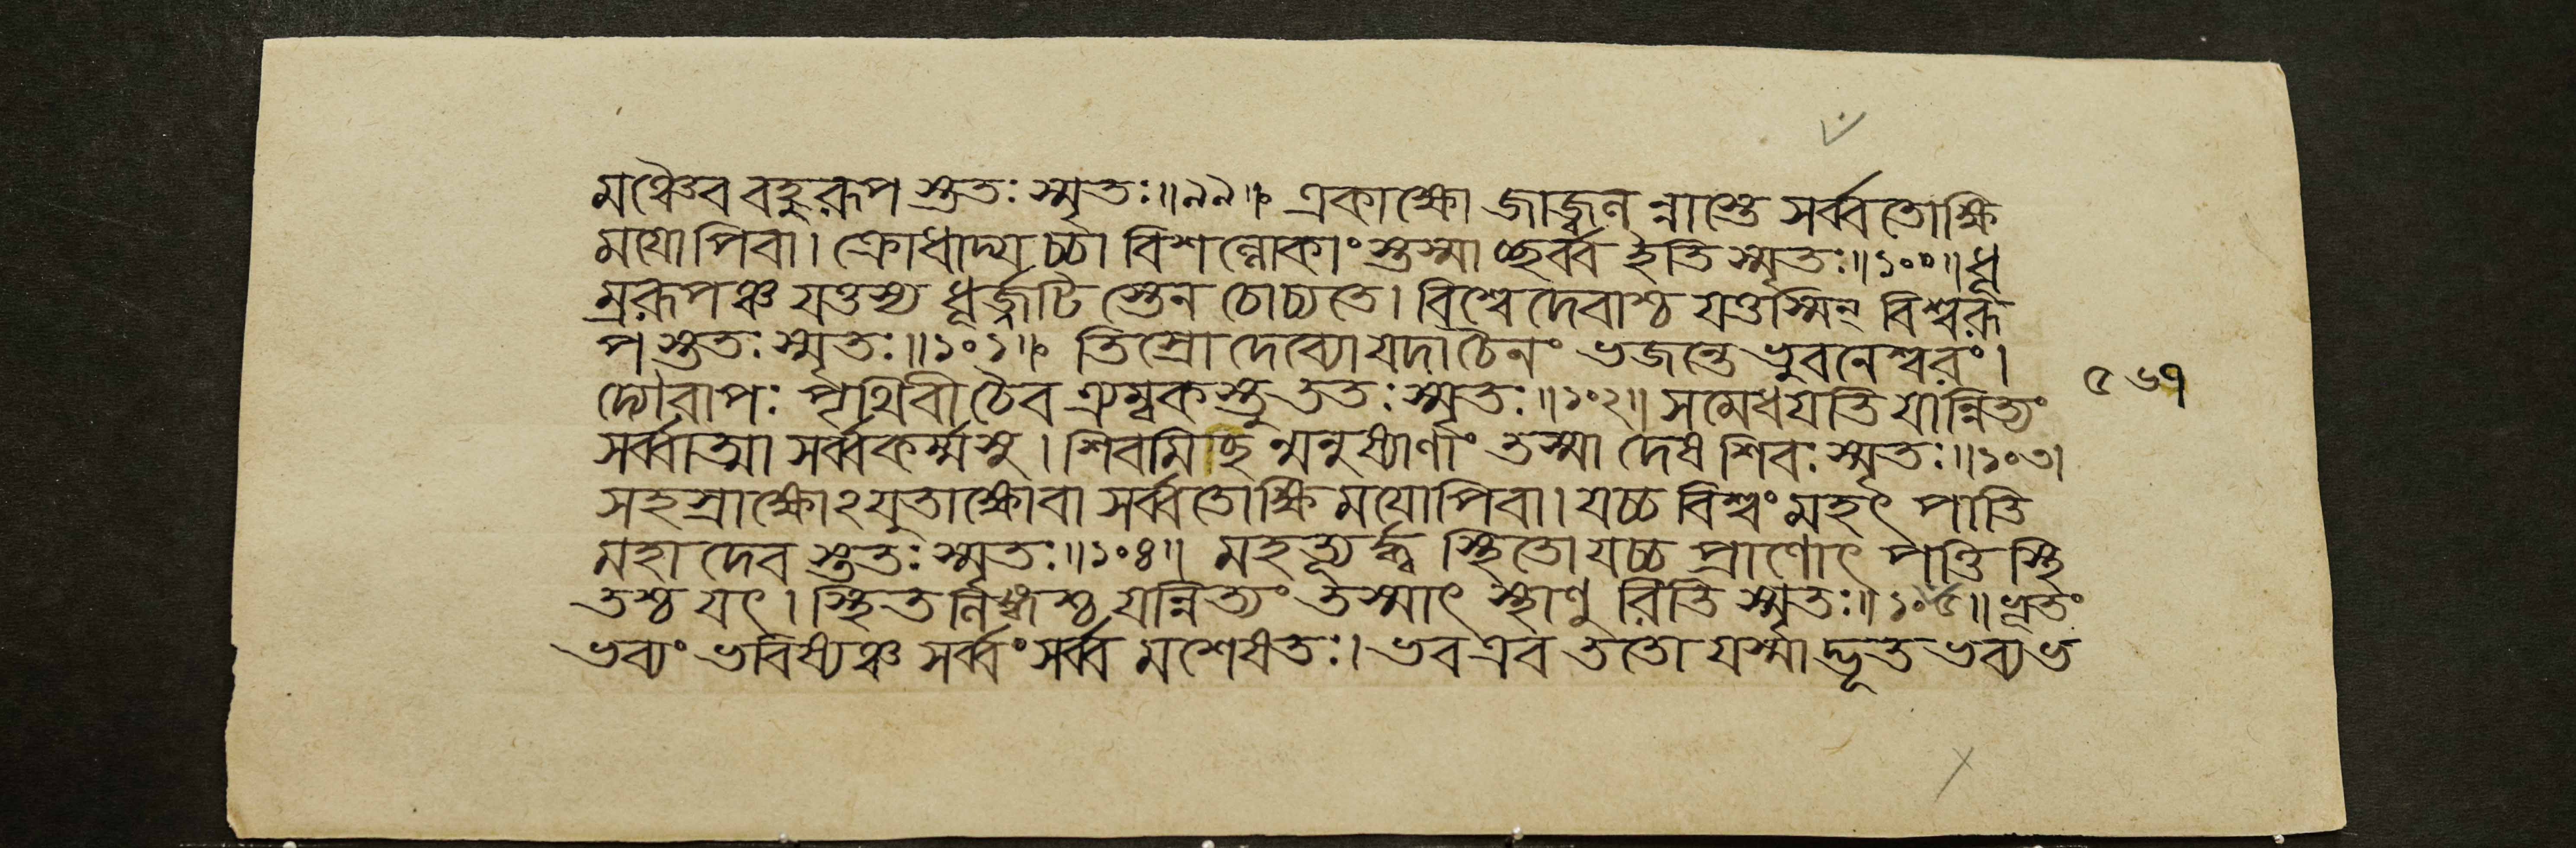 মঞ্চৈব বহুরূপ স্তুতঃ স্মৃতঃ॥৯৯॥ একাক্ষো জাজ্বল ন্নাস্তে সর্ব্বতোক্ষি
ময়োপিবা। ক্রোধাদ্য চ্চা বিশল্লোকাং স্তস্মা চ্ছর্ব্ব ইতি স্মৃতঃ॥১০০॥ধূ
ম্ররূপঞ্চ যত্তস্য ধূর্জ্জটি স্তেন চোচ্যতে। বিশ্বেদেবাশ্চ যত্তস্মিন্ বিশ্বরূ
প স্তুতঃ স্মৃতঃ॥১০১॥ তিস্রোদেব্যো যদাচৈনং ভজন্তে ভুবনেশ্বরং।
দ্যৌরাপঃ পৃথিবীচৈব ত্র্যম্বকস্তু ততঃ স্মৃতঃ॥১০২॥ সমেধয়তি যান্নিত্যং
সর্ব্বাত্মা সর্ব্বকর্ম্মসু। শিবমিচ্ছ ন্মনুষ্যাণাং তস্মা দেষ শিবঃ স্মৃতঃ॥১০৩।
সহস্রাক্ষোঽযুতাক্ষোবা সর্ব্বতোক্ষি ময়োপিবা। যচ্চ বিশ্বং মহৎ পাতি
মহাদেব স্তুতঃ স্মৃতঃ॥১০৪॥ মহত্যূর্দ্ধ্ব স্থিতোযচ্চ প্রাণোৎপত্তি স্থি
তশ্চ যৎ। স্থিতর্লিঙ্গশ্চ যন্নিত্যং তস্মাৎ স্থাণু রিতি স্মৃতঃ॥১০৫॥ ভূতং
ভব্যং ভবিষ্যঞ্চ সর্ব্বং সর্ব্ব মশেষতঃ। ভবএব ততো যস্মাদ্ভূত ভব্যভ
৫৬৭